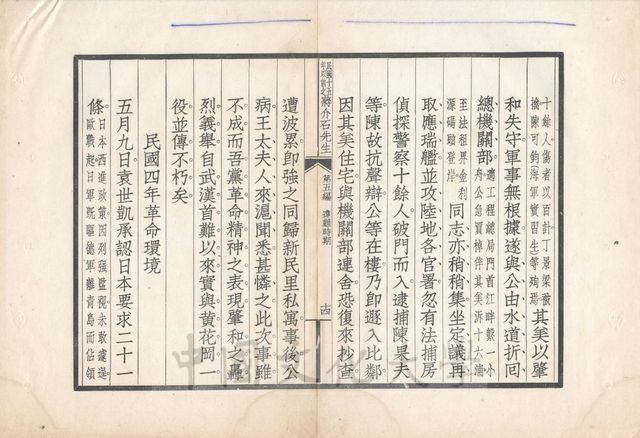 十餘人傷者以百計丁景梁被
擒陳可鈞(海軍實習生)等殉焉
其美以肇
和失守軍事無根據遂與公由水道折囘
總機關部
適工程總局門首江畔繫一小
舟公急買棹伴其美泝十六浦
至法租界金利
源碼頭登岸
同志亦稍稍集坐定議再
取應瑞艦並攻陸地各官署忽有法捕房
偵探警察十餘人破門而入逮捕陳果夫
等陳故抗聲辯公等在樓乃卽遯入比鄰
因其美住宅與機關部連舍恐復來抄查
民國十五年以前之蔣介石先生
第五編
違難時期
十四
遭波累卽強之同歸新民里私寓事後公
病王太夫人來滬聞悉甚憐之此次事雖
不成而吾黨革命精神之表現肇和之轟
烈義舉自武漢首難以來實與黃花岡一
役並傳不朽矣
民國四年革命環境
五月九日袁世凱承認日本要求二十一
條
日本西進政策因列強監視未敢遽逞
歐戰起日軍旣驅德軍離靑島而佔領
中國文化大學